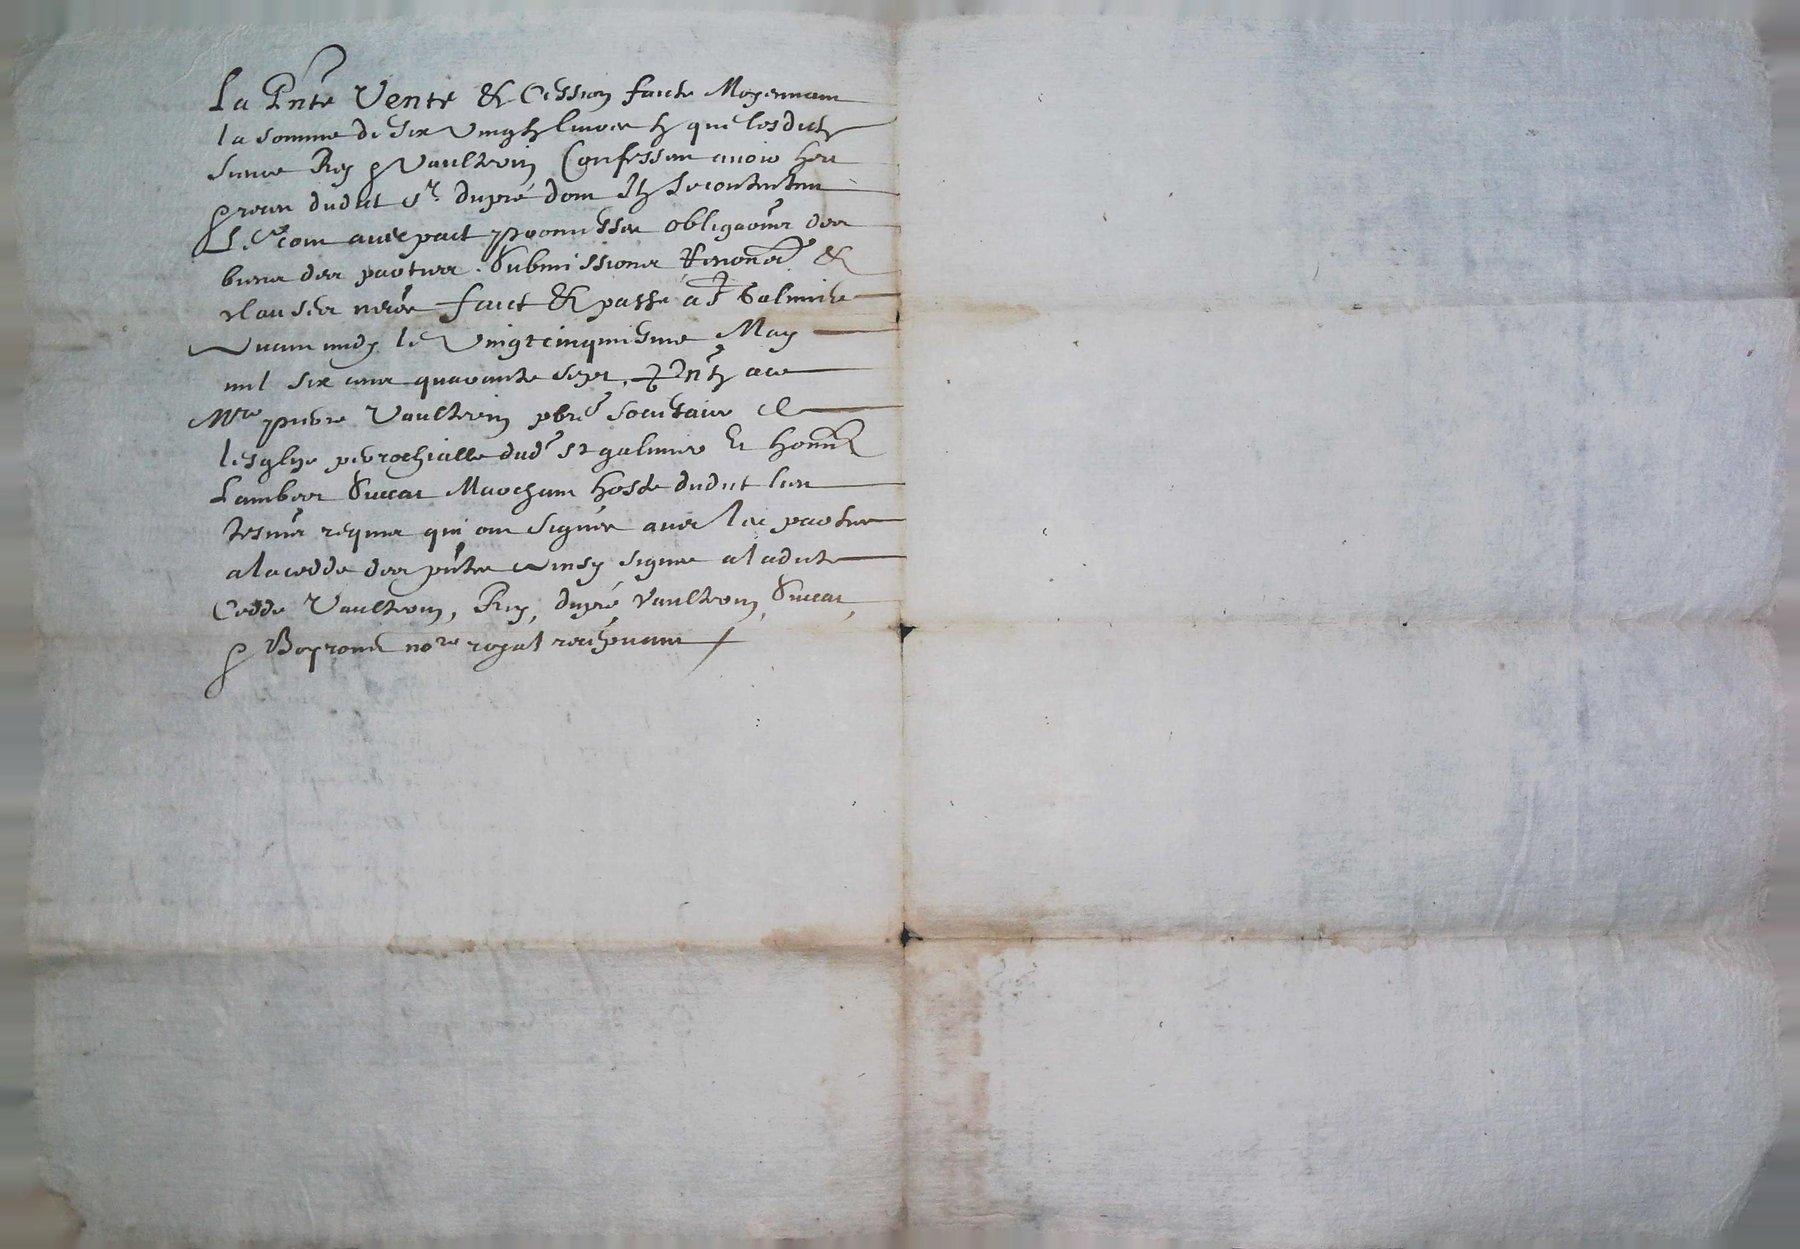 La Pnte Vente & Cession faicte Moyennant
la somme de six vingtz livres tz que lesdictz
sieurs Rey & Vaultrin Confessent avoir heu
& receu dudict sr dupré dont Ilz se contentent
Et com avec pact promisses obligaons des
biens des parties. Submissions Renonons &
clauses neres faict & passé a st Galmier
avant midy le Vingtcinquiesme May
mil six cens quarante sept, pntz a ce
Mre pierre Vaultrin pbre sociétaire de
lesglise parrochialle dudt st galmier Et honneste
Lambert Siccat Marchant hoste dudict lieu
tesmoins requis qui ont signés avec les parties
a la cedde des pntes ainsy signes a ladicte
Cedde Vaultrin, Rey, dupré Vaultrin, Siccat,
& Boyronet nore royal recepvant